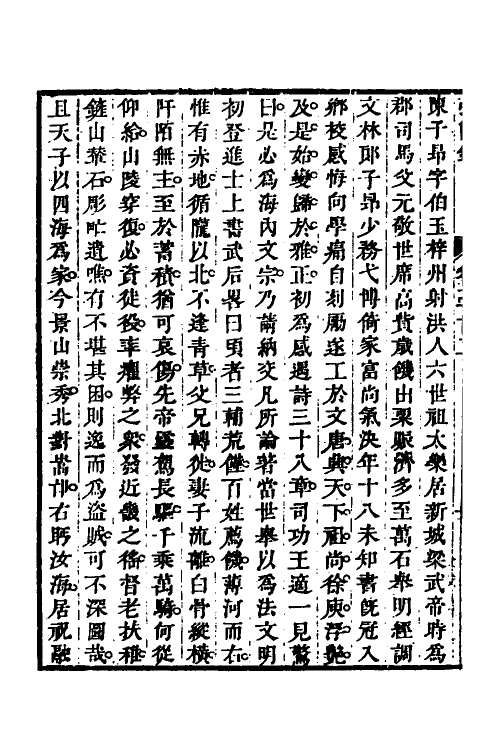 陳子昂字伯玉梓州射洪人六世祖太樂居新城梁武帝時爲
郡司馬父元敬世席高貲歲饑出粟賑濟多至萬石舉明經調
文林郎子昂少務弋博倚家富尚氣決年十八未知書旣冠入
鄉校感悔向學痛自刻勵遂工於文唐興天下祖尚徐庾浮艷
及是始變歸於雅正初爲感遇詩三十八章司功王適一見驚
曰是必爲海內文宗乃請納交凡所論著當世舉以爲法文明
初登進士上書武后畧曰頃者三輔荒饉百姓薦饑薄河而右
惟有赤地循隴以北不逢青草父兄轉徙妻子流離白骨縱橫
阡陌無主至於蓄積猶可哀傷先帝靈駕長驅千乘萬騎何從
仰給山陵穿復必資徒役率癯弊之衆發近畿之徭督老扶稚
鏟山輦石彫甿遺噍有不堪其困則逸而爲盜賊可不深圖哉
且天子以四海爲家今景山崇秀北對嵩邙右眄汝海居祝融